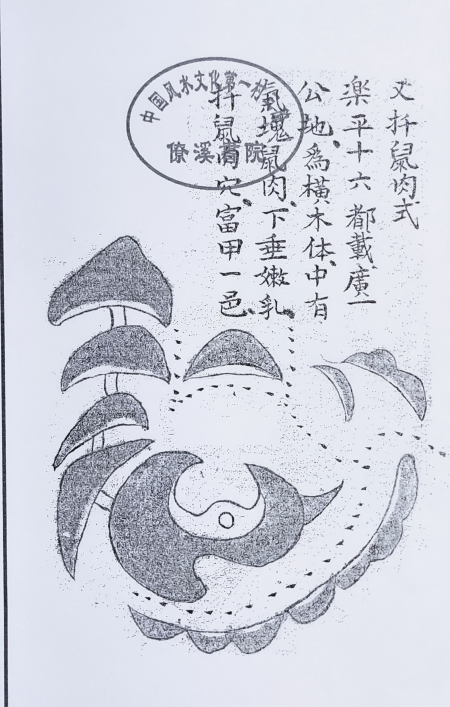 又扦鼠肉式
楽平十六都載廣一
公地爲橫木体中有
氣塊鼠肉下垂嫩乳
扦鼠肉穴富甲一邑
中国风水文化第一村
僚溪院